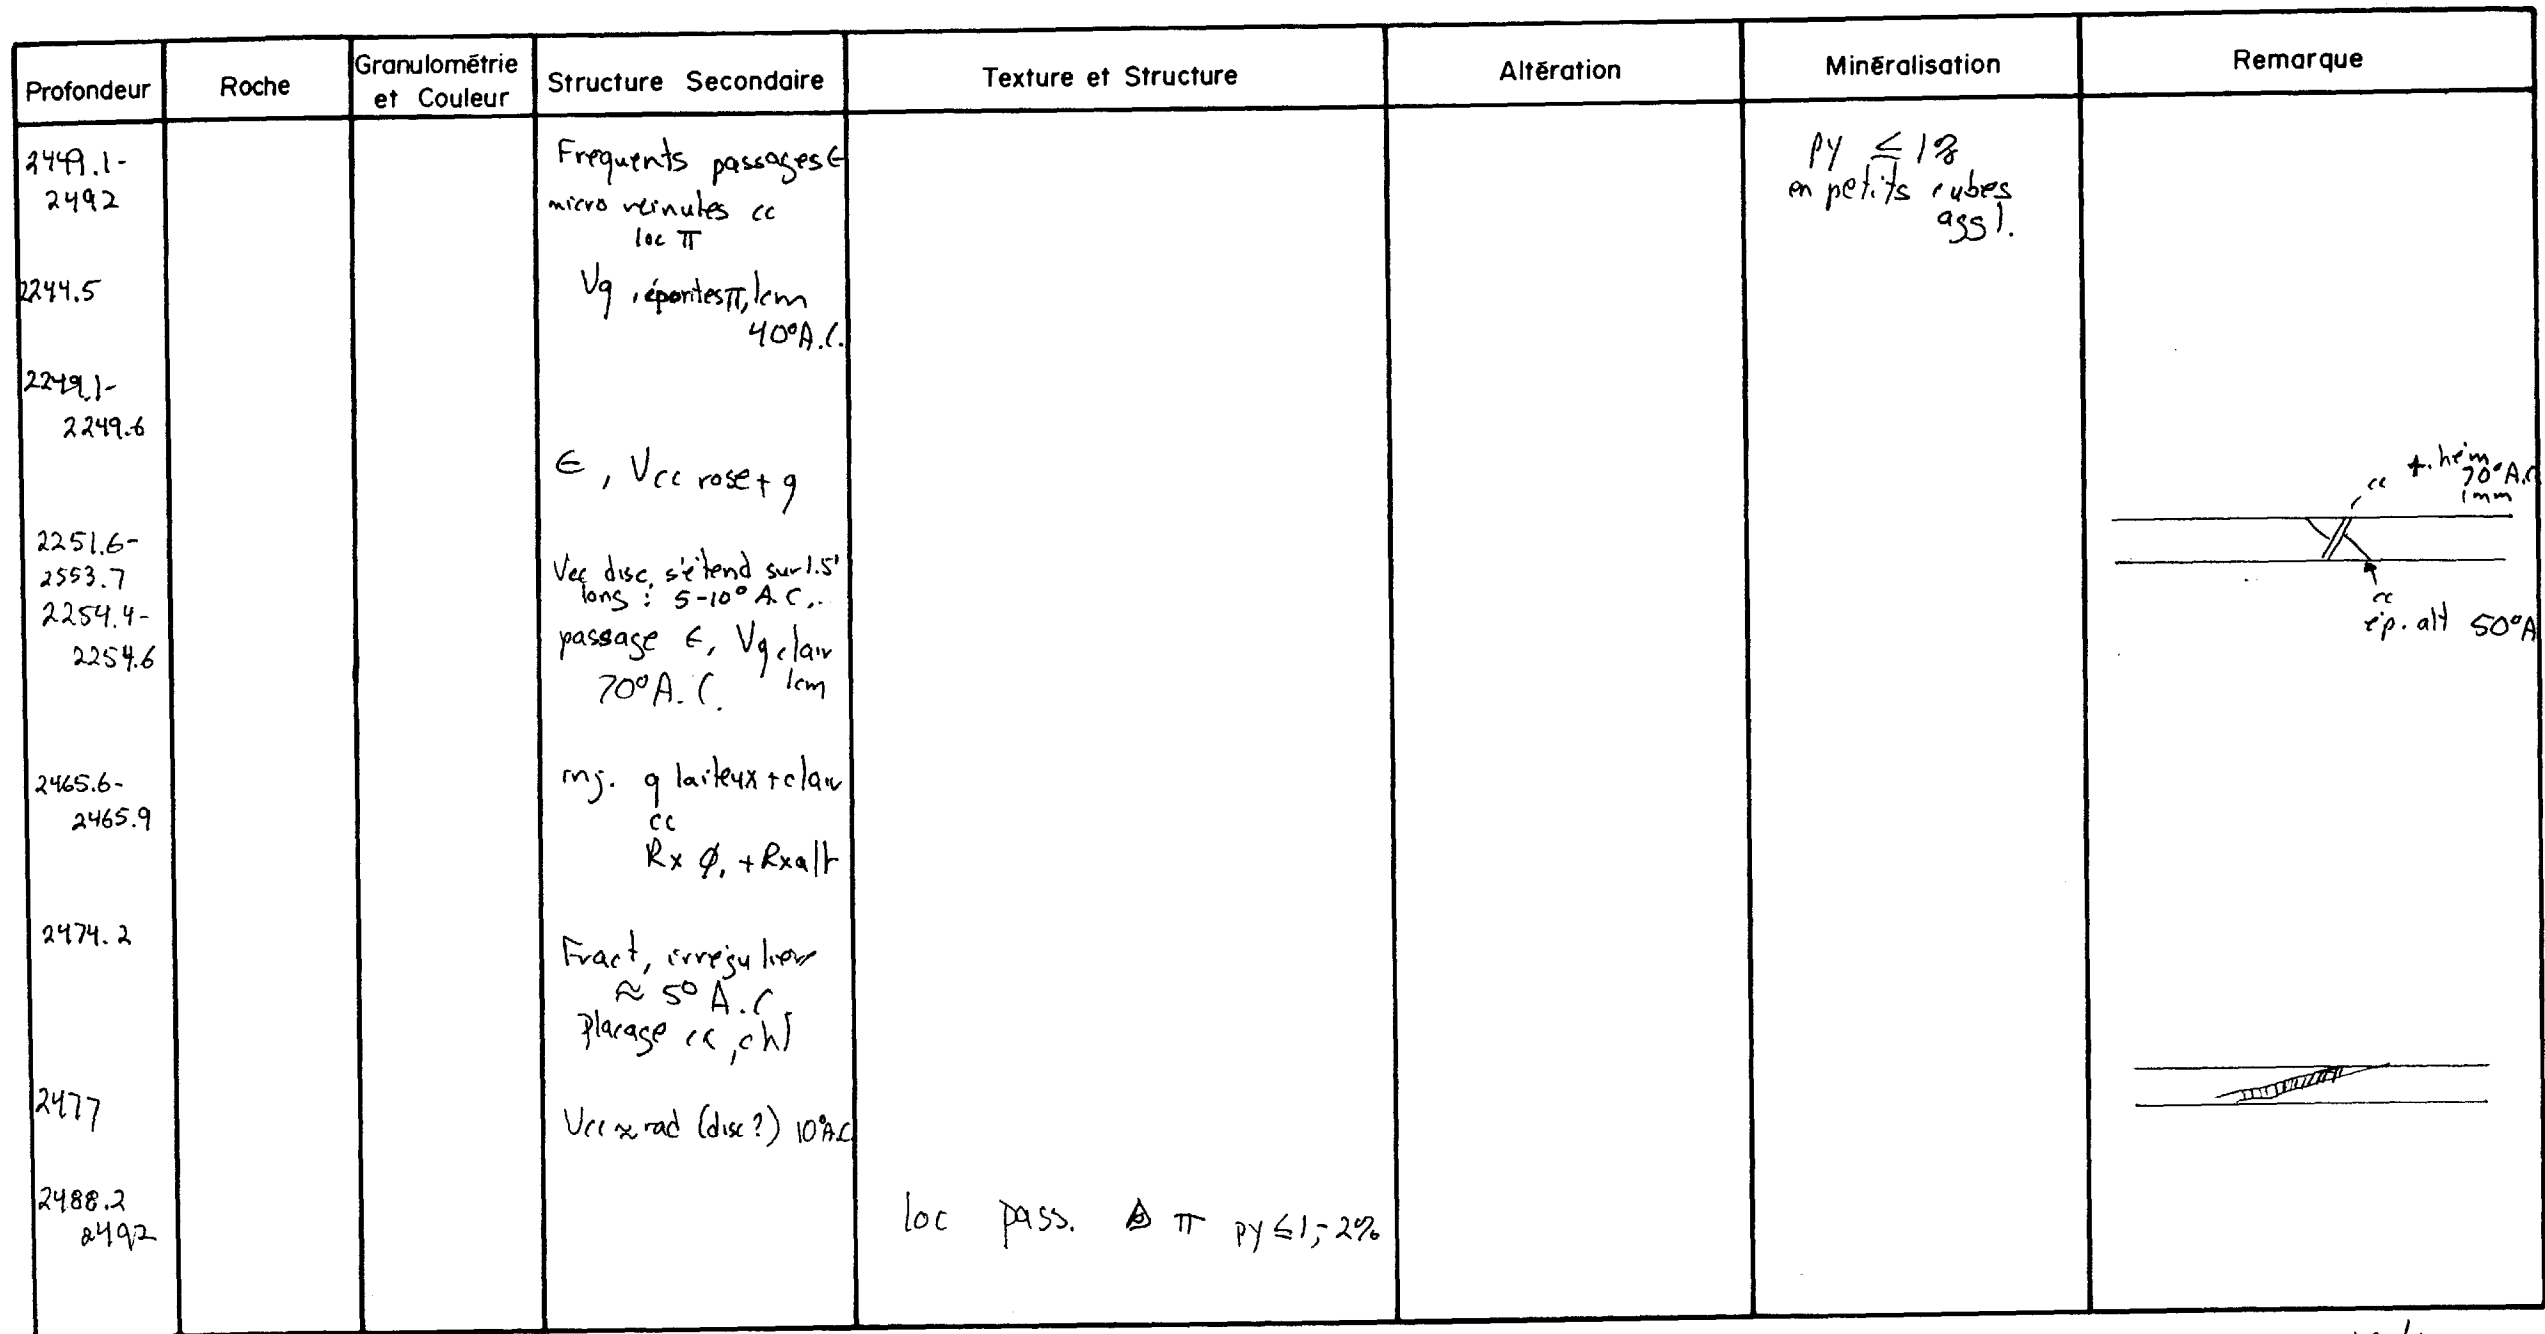 Profondeur Roche Granulométrie et Couleur Structure Secondaire Texture et Structure Altération Minéralisation Remarque
2449.1- Frequents passages ϵ py ≤ 1%
2492 micro veinules cc en petits cubes
loc π aggl.
2244.5 Vq, épontes π, 1cm
40°A.C.
2249.1-
2249.6
ϵ, Vcc rose + q
cc + hém
70°A.C
1mm
2251.6-
2553.7 Vcc disc, s'étend sur 1.5'
long : 5-10° A.C.
2254.4-
2254.6 passage ϵ, Vq clair
70°A.C. 1cm
cc
ép. alt 50°A
2465.6- inj. q laiteux + clair
2465.9 cc
Rx φ, + Rx alt
2474.2 Fract, irrégulière
≈ 5° A.C
placage cc, chl
2477 Vcc ≈ rad (disc?) 10°A.C
2488.2
2492 loc pass. π py ≤ 1,-2%